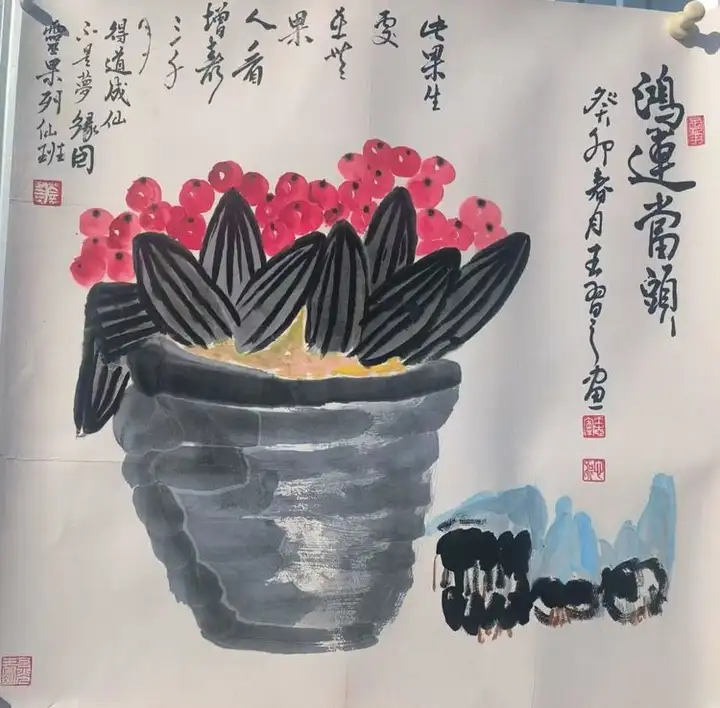 鴻運當頭
癸卯春月王習之畫
此果生
雯
並世
果
人看
增壽
三千
年
得道成仙
不是夢緣因
靈果列仙班